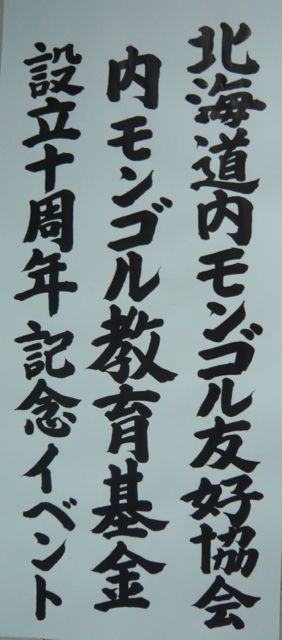 北海道内モンゴル友好協会
内モンゴル教育基金
設立十周年記念イベント